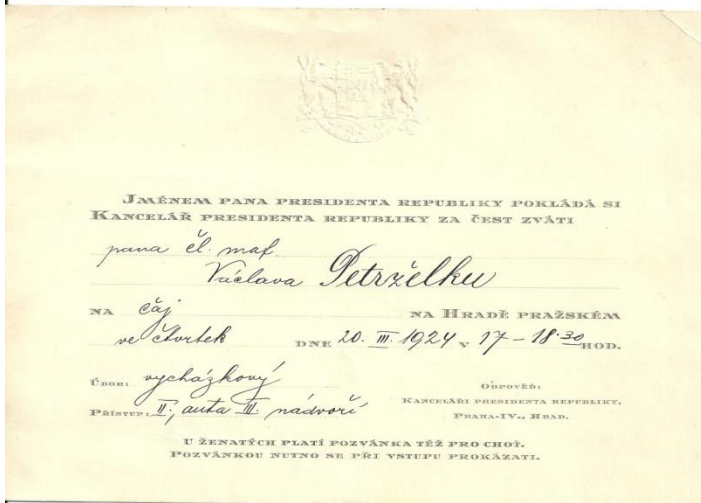 JMÉNEM PANA PRESIDENTA REPUBLIKY POKLÁDÁ SI
KANCELÁŘ PRESIDENTA REPUBLIKY ZA ČEST ZVÁTI
pana čl. maf.
Václava Petrželku
NA čaj NA HRADĚ PRAŽSKÉM
ve čtvrtek DNE 20. III. 1924 V 17 – 18·30 HOD.
ÚBOR: vycházkový
PŘÍSTUP: II., auta III. nádvoří
ODPOVĚĎ:
KANCELÁŘI PRESIDENTA REPUBLIKY,
PRAHA-IV., HRAD.
U ŽENATÝCH PLATÍ POZVÁNKA TÉŽ PRO CHOŤ.
POZVÁNKOU NUTNO SE PŘI VSTUPU PROKÁZATI.